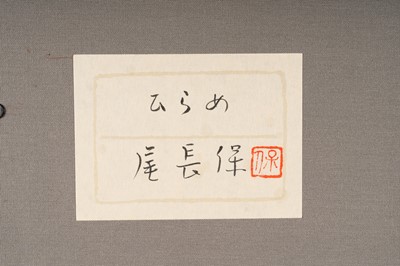 ひらめ
尾長保
保